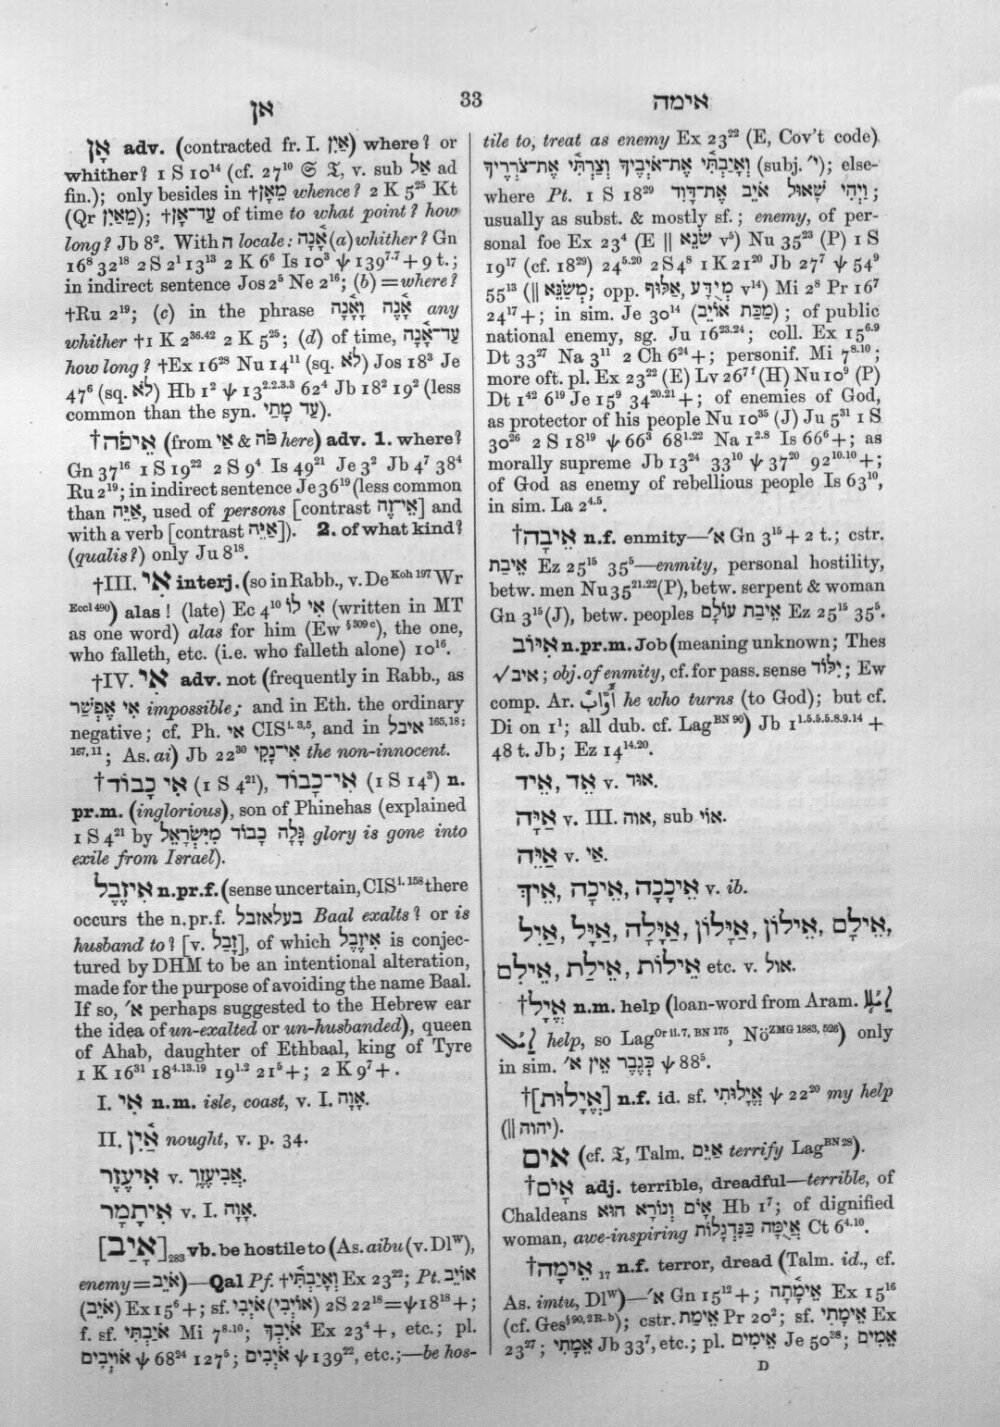 אן
33
אימה
אָן adv. (contracted fr. I. אַיִן) where? or
whither? 1 S 10¹⁴ (cf. 27¹⁰ 𝔖 𝔗, v. sub אֶל ad
fin.); only besides in †מֵאָן whence? 2 K 5²⁵ Kt
(Qr מֵאַיִן); †עַד־אָן of time to what point? how
long? Jb 8². With ה locale: אָ֫נָה (a) whither? Gn
16⁸ 32¹⁸ 2 S 2¹ 13¹³ 2 K 6⁶ Is 10³ ψ 139⁷·⁷ + 9 t.;
in indirect sentence Jos 2⁵ Ne 2¹⁶; (b) = where?
†Ru 2¹⁹; (c) in the phrase אָ֫נֶה וָאָ֫נָה any
whither †1 K 2³⁶·⁴² 2 K 5²⁵; (d) of time, עַד־אָ֫נָה
how long? †Ex 16²⁸ Nu 14¹¹ (sq. לֹא) Jos 18³ Je
47⁶ (sq. לֹא) Hb 1² ψ 13²·²·³·³ 62⁴ Jb 18² 19² (less
common than the syn. עַד מָתַי).
†אֵיפֹה (from אֵי & פֹּה here) adv. 1. where?
Gn 37¹⁶ 1 S 19²² 2 S 9⁴ Is 49²¹ Je 3² Jb 4⁷ 38⁴
Ru 2¹⁹; in indirect sentence Je 36¹⁹ (less common
than אַיֵּה, used of persons [contrast אֵי־זֶה] and
with a verb [contrast אַיֵּה]). 2. of what kind?
(qualis?) only Ju 8¹⁸.
†III. אִי interj. (so in Rabb., v. De Koh 197 Wr
Eccl 490) alas! (late) Ec 4¹⁰ אִי לוֹ (written in MT
as one word) alas for him (Ew §309c), the one,
who falleth, etc. (i.e. who falleth alone) 10¹⁶.
†IV. אִי adv. not (frequently in Rabb., as
אִי אֶפְשָׁר impossible; and in Eth. the ordinary
negative; cf. Ph. אי CIS i. 3, 5, and in איבל 165, 18;
167, 11; As. ai) Jb 22³⁰ אִי־נָקִי the non-innocent.
†אִי כָבוֹד (1 S 4²¹), אִי־כָבוֹד (1 S 14³) n.
pr.m. (inglorious), son of Phinehas (explained
1 S 4²¹ by גָּלָה כָבוֹד מִיִּשְׂרָאֵל glory is gone into
exile from Israel).
אִיזֶבֶל n.pr.f. (sense uncertain, CIS i. 158 there
occurs the n.pr.f. בעלאזבל Baal exalts? or is
husband to? [v. זָבַל], of which אִיזֶבֶל is conjec-
tured by DHM to be an intentional alteration,
made for the purpose of avoiding the name Baal.
If so, א׳ perhaps suggested to the Hebrew ear
the idea of un-exalted or un-husbanded), queen
of Ahab, daughter of Ethbaal, king of Tyre
1 K 16³¹ 18⁴·¹³·¹⁹ 19¹·² 21⁵ +; 2 K 9⁷ +.
I. אִי n.m. isle, coast, v. I. אָוָה.
II. אַ֫יִן nought, v. p. 34.
אִיעֶזֶר v. אֲבִיעֶזֶר.
אִיתָמָר v. I. אָוָה.
[אָיַב] 283 vb. be hostile to (As. aibu (v. Dl W),
enemy = אֹיֵב)—Qal Pf. †וְאָיַבְתִּ֫י Ex 23²²; Pt. אוֹיֵב
(אֹיֵב) Ex 15⁶ +; sf. אֹיְבִי (אוֹיְבִי) 2S 22¹⁸ = ψ 18¹⁸ +;
f. sf. אֹיַבְתִּי Mi 7⁸·¹⁰; אֹיִבְךָ Ex 23⁴ +, etc.; pl.
אוֹיְבִים ψ 68²⁴ 127⁵; אֹיְבִים ψ 139²², etc.;—be hos-
tile to, treat as enemy Ex 23²² (E, Cov't code)
וְאָיַבְתִּ֫י אֶת־אֹיְבֶיךָ וְצַרְתִּ֫י אֶת־צֹרְרֶיךָ (subj. י׳); else-
where Pt. 1 S 18²⁹ וַיְהִי שָׁאוּל אֹיֵב אֶת־דָּוִד;
usually as subst. & mostly sf.; enemy, of per-
sonal foe Ex 23⁴ (E ‖ שֹׂנֵא v⁵) Nu 35²³ (P) 1 S
19¹⁷ (cf. 18²⁹) 24⁵·²⁰ 2 S 4⁸ 1 K 21²⁰ Jb 27⁷ ψ 54⁹
55¹³ (‖ מְשַׂנֵּא; opp. אַלּוּף, מְיֻדָּע v¹⁴) Mi 2⁸ Pr 16⁷
24¹⁷ +; in sim. Je 30¹⁴ (מַכַּת אוֹיֵב); of public
national enemy, sg. Ju 16²³·²⁴; coll. Ex 15⁶·⁹
Dt 33²⁷ Na 3¹¹ 2 Ch 6²⁴ +; personif. Mi 7⁸·¹⁰;
more oft. pl. Ex 23²² (E) Lv 26⁷ᶠ (H) Nu 10⁹ (P)
Dt 1⁴² 6¹⁹ Je 15⁹ 34²⁰·²¹ +; of enemies of God,
as protector of his people Nu 10³⁵ (J) Ju 5³¹ 1 S
30²⁶ 2 S 18¹⁹ ψ 66³ 68¹·²² Na 1²·⁸ Is 66⁶ +; as
morally supreme Jb 13²⁴ 33¹⁰ ψ 37²⁰ 92¹⁰·¹⁰ +;
of God as enemy of rebellious people Is 63¹⁰,
in sim. La 2⁴·⁵.
†אֵיבָה n.f. enmity—א׳ Gn 3¹⁵ + 2 t.; cstr.
אֵיבַת Ez 25¹⁵ 35⁵—enmity, personal hostility,
betw. men Nu 35²¹·²² (P), betw. serpent & woman
Gn 3¹⁵ (J), betw. peoples אֵיבַת עוֹלָם Ez 25¹⁵ 35⁵.
אִיּוֹב n.pr.m. Job (meaning unknown; Thes
√איב; obj. of enmity, cf. for pass. sense יִלּוֹד; Ew
comp. Ar. أَوَّابٌ he who turns (to God); but cf.
Di on 1¹; all dub. cf. Lag BN 90) Jb 1¹·⁵·⁵·⁵·⁸·⁹·¹⁴ +
48 t. Jb; Ez 14¹⁴·²⁰.
אֵד, אֵיד v. אוד.
אַיָּה v. III. אוה, sub אוֹי.
אַיֵּה v. אֵי.
אֵיכָכָה, אֵיכָה, אֵיךְ v. ib.
אֵילָם, אֵילוֹן, אַיָּלוֹן, אַיָּלָה, אַיָּל, אַיִל,
אֵילוֹת, אֵילַת, אֵילִם etc. v. אול.
†אֱיָל n.m. help (loan-word from Aram.
help, so Lag Or ii. 7, BN 175, Nö ZMG 1883, 526) only
in sim. כְּגֶבֶר אֵין א׳ ψ 88⁵.
†[אֱיָלוּת] n.f. id. sf. אֱיָלוּתִי ψ 22²⁰ my help
(‖ יהוה).
אים (cf. 𝔗, Talm. אַיֵּם terrify Lag BN 28).
†אָיֹם adj. terrible, dreadful—terrible, of
Chaldeans אָיֹם וְנוֹרָא הוּא Hb 1⁷; of dignified
woman, awe-inspiring אֲיֻמָּה כַּנִּדְגָּלוֹת Ct 6⁴·¹⁰.
†אֵימָה 17 n.f. terror, dread (Talm. id., cf.
As. imtu, Dl W)—א׳ Gn 15¹² +; אֵימָ֫תָה Ex 15¹⁶
(cf. Ges §90, 2 R. b); cstr. אֵימַת Pr 20²; sf. אֵימָתִי Ex
23²⁷; אֵמָתִי Jb 33⁷, etc.; pl. אֵימִים Je 50³⁸; אֵמִים
D